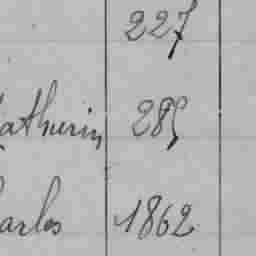 227
Catherin 285
Carlos 1862